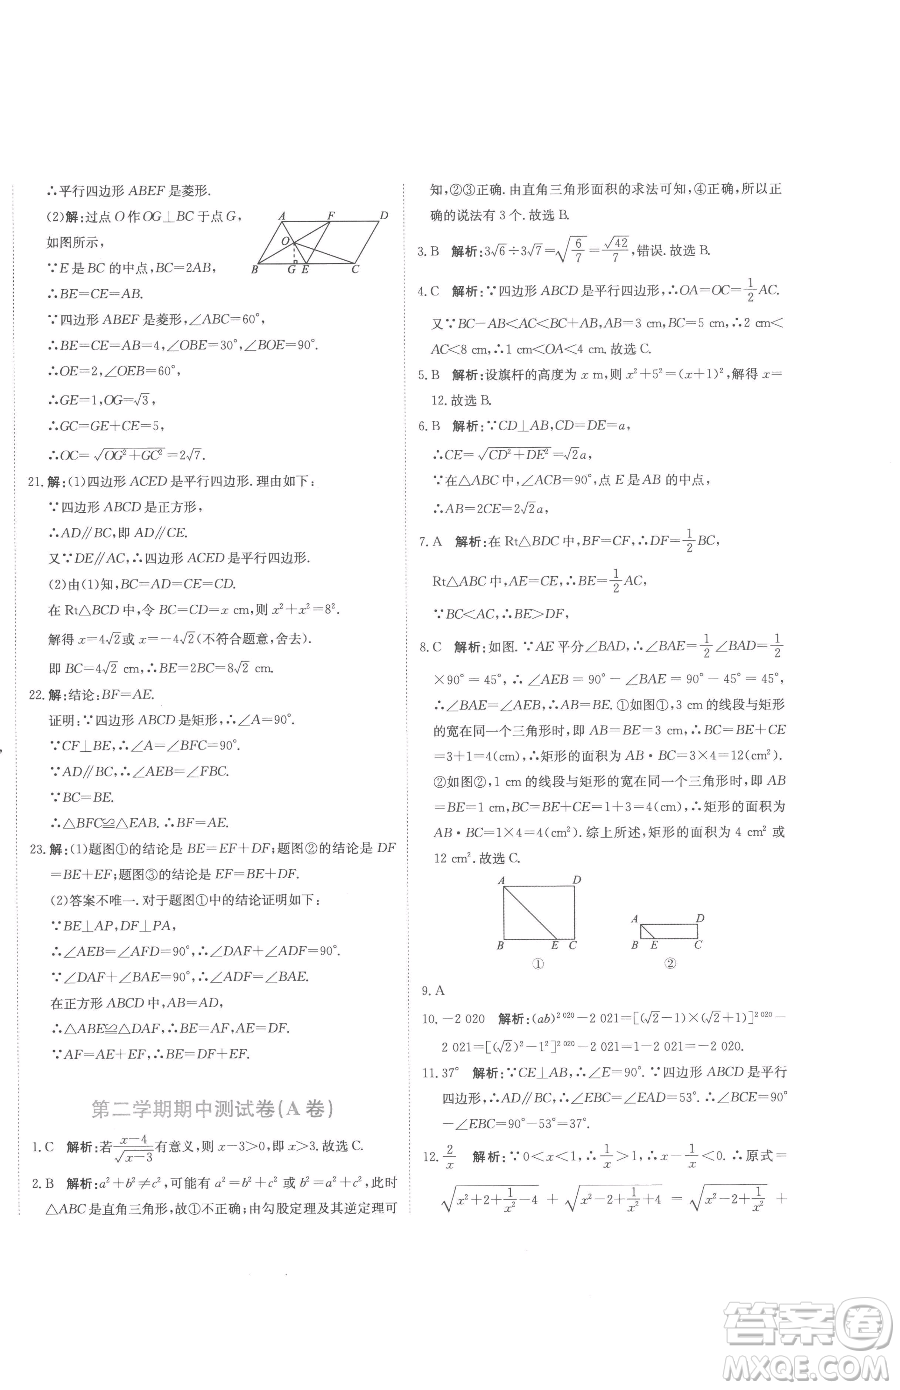 ∴平行四边形 ABEF 是菱形.
(2)解:过点 O 作 OG⊥BC 于点 G,
如图所示,
∵E 是 BC 的中点,BC=2AB,
∴BE=CE=AB.
∵四边形 ABEF 是菱形,∠ABC=60°,
∴BE=CE=AB=4,∠OBE=30°,∠BOE=90°.
∴OE=2,∠OEB=60°.
∴GE=1,OG=√3.
∴GC=GE+CE=5.
∴OC=√(OG²+GC²)=2√7.
A F D
O
B G E C
21.解:(1)四边形 ACED 是平行四边形.理由如下:
∵四边形 ABCD 是正方形,
∴AD∥BC,即 AD∥CE.
又∵DE∥AC,∴四边形 ACED 是平行四边形.
(2)由(1)知,BC=AD=CE=CD.
在 Rt△BCD 中,令 BC=CD=x cm,则 x²+x²=8².
解得 x=4√2或 x=-4√2(不符合题意,舍去).
即 BC=4√2 cm,∴BE=2BC=8√2 cm.
22.解:结论:BF=AE.
证明:∵四边形 ABCD 是矩形,
∵CF⊥BE,∴∠A=∠BFC=90°.
∵AD∥BC,∴∠AEB=∠FBC.
∵BC=BE.
∴△BFC≌△EAB.∴BF=AE.
23.解:(1)题图①的结论是 BE=EF+DF;题图②的结论是 DF=
BE+EF;题图③的结论是 EF=BE+DF.
(2)答案不唯一.对于题图①中结论证明如下:
∵BE⊥AP,DF⊥PA,
∴∠AEB=∠AFD=90°,∴∠DAF+∠ADF=90°.
∵∠DAF+∠BAE=90°,∴∠ADF=∠BAE.
在正方形 ABCD 中,AB=AD,
∴△ABE≌△DAF,∴BE=AF,AE=DF.
∵AF=AE+EF,∴BE=EF+DF.
第二学期期中测试卷(A 卷)
1.C 解析:若(x-4)/√(x-3)有意义,则 x-3>0,即 x>3.故选 C.
2.B 解析:a²+b²≠c²,可能有 a²=b²+c² 或 b²=a²+c²,此时
△ABC 是直角三角形,故①不正确;由勾股定理及其逆定理可
知,②③正确.由直角三角形面积的求法可知,④正确,所以正
确的说法有 3 个.故选 B.
3.B 解析:3√6÷3√7=√(6/7)=√42/7,错误.故选 B.
4.C 解析:∵四边形 ABCD 是平行四边形,∴OA=OC=1/2AC.
又∵BC-AB<AC<BC+AB,AB=3 cm,BC=5 cm,∴2 cm<
AC<8 cm,∴1 cm<OA<4 cm.故选 C.
5.B 解析:设旗杆的高度为 x m,则 x²+5²=(x+1)²,解得 x=
12.故选 B.
6.B 解析:∵CD⊥AB,CD=DE=a,
∴CE=√(CD²+DE²)=√2a,
∵在△ABC 中,∠ACB=90°,点 E 是 AB 的中点,
∴AB=2CE=2√2a,
7.A 解析:在 Rt△BDC 中,BF=CF,∴DF=1/2BC,
Rt△ABC 中,∠ABC=90°,AE=CE,∴BE=1/2AC,
∵BC<AC,∴BE>DF,
8.C 解析:如图.∵AE 平分∠BAD,∴∠BAE=1/2∠BAD=1/2
×90°=45°,∴∠BEA=90°-∠BAE=90°-45°=45°,
∴∠BAE=∠BEA,∴AB=BE.①如图①,3 cm 的线段与矩形
的宽在同一个三角形时,即 AB=BE=3 cm,∴BC=BE+CE
=3+1=4(cm),∴矩形的面积为 AB·BC=3×4=12(cm²).
②如图②,1 cm 的线段与矩形的宽在同一个三角形时,即 AB
=BE=1 cm,∴BC=BE+CE=1+3=4(cm),∴矩形的面积为
AB·BC=1×4=4(cm²).综上所述,矩形的面积为 4 cm² 或
12 cm².故选 C.
A D A D
B E C B E C
① ②
9.A
10.-2 020 解析:(ab)²⁰²⁰-2 021=[(√2-1)×(√2+1)]²⁰²⁰-
2 021=[(√2)²-1²]²⁰²⁰-2 021=1-2 021=-2 020.
11.37° 解析:∵CE⊥AB,∴∠E=90°.∵四边形 ABCD 是平行
四边形,∴AD∥BC,∴∠CBE=∠EAD=53°,∴∠BCE=
90°-∠CBE=90°-53°=37°.
12.2/x 解析:∵0<x<1,∴1/x>1,∴x-1/x<0.∴原式=
√(x²+2+1/x²-4)+√(x²-2+1/x²+4)=√(x²-2+1/x²)+
答案圈
MXQE.COM